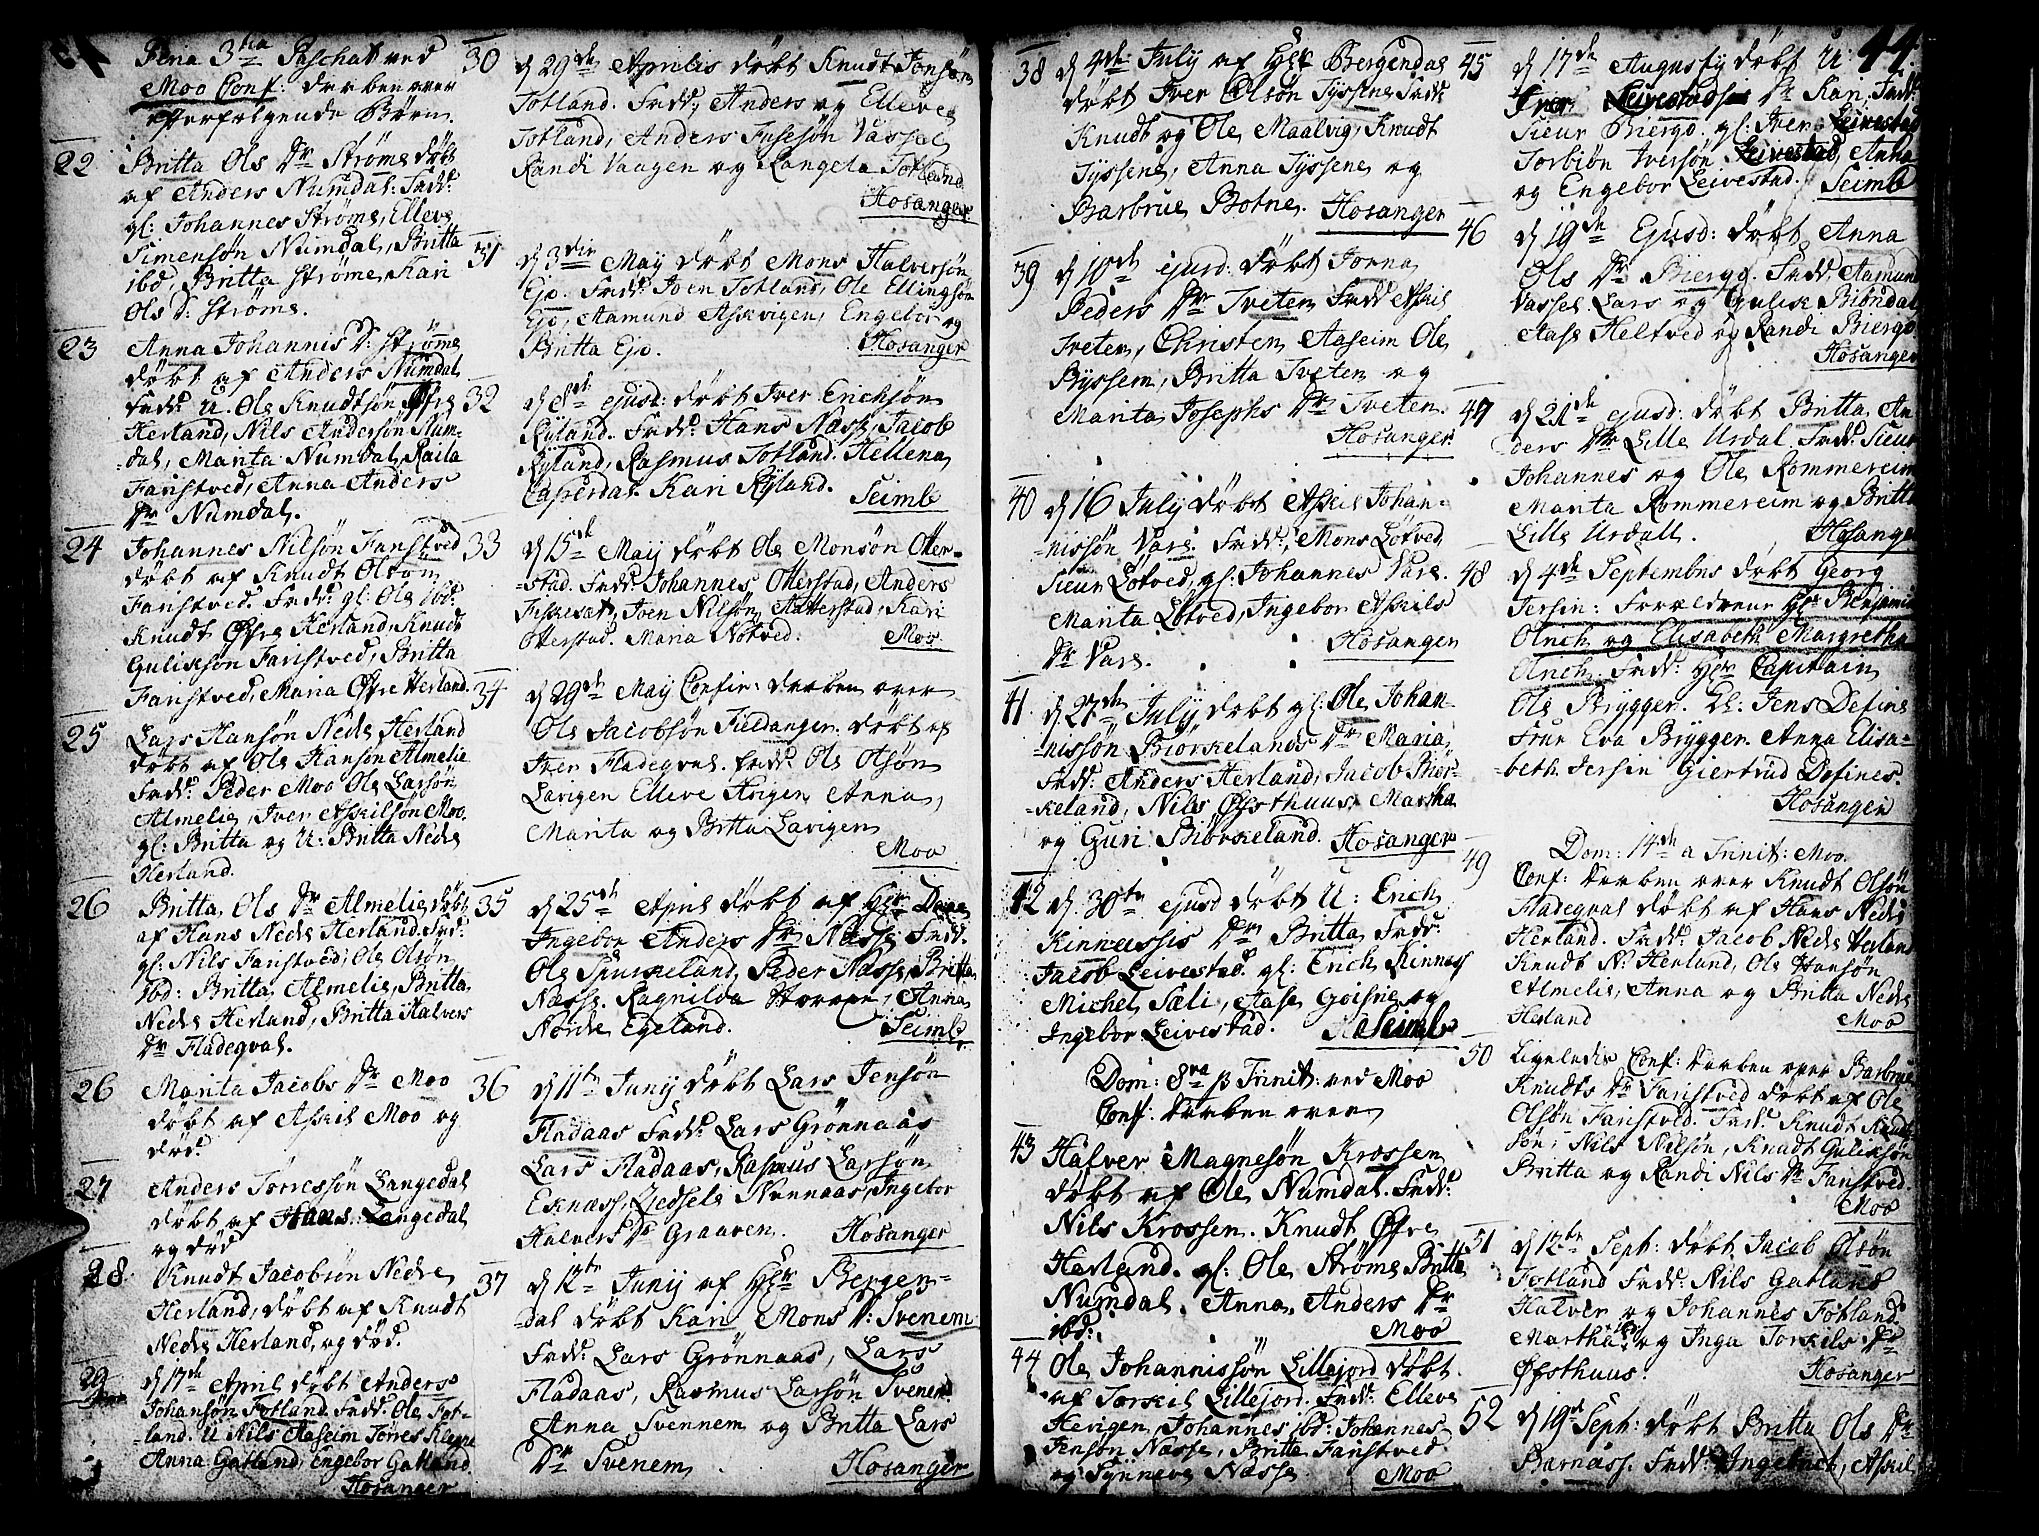 Feria 3tia Paschat ved
Moo Conf: Daaben over
efterfølgende Børn.
22 Britta Ols Dr Strøms døbt
af Anders Numdal: Fadd:
gl: Johannes Strøms, Ellevs
Simensøn Numdal, Britta
ibd, Britta Strøms, Kari
Ols d: Strøms.
23 Anna Johannis D: Strøms
døbt af Anders Numdal
Fadd: U. Ole Knudtsøn Øfre
Herland, Nils Andersøn Num-
-dal, Marita Numdal, Raila
Faristved, Anna Anders
Dr Numdal.
24 Johannes Nilsøn Faristved
døbt af Knudt Olsøn
Faristved. Fadd: gl: Ole ibd:
Knudt Øfre Herland, Knudt
Guliksøn Faristved, Britta
Faristved, Maria Øfre Herland.
25 Lars Hansøn Nedre Herland
døbt af Ole Hansøn Almelie
Fadd: Peder Moo Ole Larsøn
Almelie, Iver Askilsøn Moo,
gl: Britta og U: Britta Nedre
Herland.
26 Britta Ols Dr Almelie, døbt
af Hans Nedre Herland. Fad:
gl: Nils Faristved, Ole Olsøn
ibd: Britta Almelie, Britta
Nedre Herland, Britta Halvers
Dr Fladeqval.
26 Marita Jacobs Dr Moo
døbt af Askil Moo og
død.
27 Anders Torressøn Langedal
døbt af Hans Langedal
og død
28. Knudt Jacobsøn Nedre
Herland, døbt af Knudt
Nedre Herland, og død.
29 d 17de April døbt Anders
Johansøn Totland. Fadd: Ole Tot-
-land. U Nils Aaseim Torres Kleppe
Anna Gatland, Engebor Gatland.
Hosanger
30 d 29de Aprilis døbt Knudt Jonsøn
Totland. Fadd: Anders og Elleve
Totland, Anders Jusesøn Vassel
Randi Vaagen og Rangela Totland.
Hosanger
31 d 3die May døbt Mons Halversøn
Ejo. Fadd: Joen Totland, Ole Ellingsøn
Ejo, Aamund Askvigen, Engebor og
Britta Ejo. Hosanger
32 d 8de ejusd: døbt Iver Erichsøn
Ryland. Fadd: Hans Nasse, Jacob
Ryland, Rasmus Totland. Hellena
Caperdal. Kari Ryland. Seimb
33 d 15de May døbt Ole Monsøn Otter-
-stad. Fadd: Johannes Otterstad, Anders
Fiskeset, Joen Nilsøn Aatterstad, Kari
Otterstad. Maria Nøtved. Moo
34 d 29de May Confir: daaben over
Ole Jacobsøn Fieldanger. døbt af
Iver Fladeqval. Fadd: Ole Olsøn
Lavigen Elleve Herigen Anna,
Marita og Britta Lavigen
Moo
35 d 25de April døbt af Hr Daae
Ingebor Anders Dr Nasse Fadd:
Ole Spurkeland, Peder Nasse, Britta
Nasse. Ragnilda Storrpe, Anna
Nordre Egeland. Seimb
36 d 11te Junij døbt Lars Jensøn
Fladaas Fadd: Lars Grønnaas
Lars Fladaas, Rasmus Larsøn
Eknass, Zidsele Nonnaas, Ingebor
Halvers Dr Graaven. Hosanger
37 d 12te Junij af Hr Bergen-
dal døbt Kari Mons D: Svenem
Fadd: Lars Grønnaas, Lars
Fladaas, Rasmus Larsøn Svenem
Anna Svennem og Britta Lars
Dr Svenem Hosanger
38 d 4de July af Hr Bergendal
døbt Iver Olsøn Tyssene Fadd:
Knudt og Ole Maalvig, Knudt
Tyssene, Anna Tyssene og
Barbrue Botne. Hosanger
39 d 10de ejusd: døbt Jonna
Peders Dr Tveten Fadd Askil
Tveten, Christen Aaseim Ole
Byssem, Britta Tveten og
Marita Josephs Dr Tveten.
Hosanger
40 d 16 July døbt Askil Johan-
-nissøn Vare. Fadd: Mons Løtved
Sieur Løtved, gl: Johannes Vare.
Marita Løtved, Ingebor Askils
Dr Vare. Hosanger
41. d 27de July døbt gl: Ole Johan-
-nissøn Biørkelands Dr Maria,
Fadd: Anders Herland, Jacob Biør-
-keland, Nils Øfsthuus, Martha
og Guri Biørkeland. Hosanger
42 d. 30te ejusd døbt U: Erich
Kinnasses Dr Britta Fadd:
Jacob Leivestad. gl: Erich Kinnas
Michel Sæli, Aase Goisne og
Ingebor Leivestad. Seimb
Dom: 8va p Trinit: ved Moo
Conf: daaben over
43 Halver Magnesøn Krossen
døbt af Ole Numdal. Fadd:
Nils Krossen. Knudt Øfre
Herland. gl: Ole Strøms Britta
Numdal. Anna Anders Dr
ibd: Moo
44 Ole Johannissøn Lillejord døbt
af Torkil Lillejord. Fadd: Elleve
Herigen, Johannes ibd: Johannes
Jensøn Nasse, Britta Faristved
og Synneve Nasse Moo
44.
45 d 17de Augusty døbt U:
Iver Leivestads Dr Kari, Fadd:
Sieur Biergo. gl: Iver Leivestad
Torbiøn Iversøn Leivestad, Anna
og Engebor Leivestad. Seimb
46 d 19de Ejusd: døbt Anna
Ols Dr Biergo. Fadd: Aamund
Vassel Lars og Gulik Biøndal
Aase Heltved og Randi Biergo
Hosanger
47 d 21de ejusd: døbt Britta An-
ders Dr Lille Urdal. Fadd: Sieur
Johannes og Ole Rommereim
Marita Rommereim og Britta
Lille Urdall. Hosanger
48 d 4de Septembris døbt Georg
Jersin: Forældrene Hr Benjamin
Olrich og Elisabeth Margretha
Olrich Fadd: Hr Capitain
Ole Brygger. Hl: Jens Define
Frue Eva Brygger. Anna Elisa-
-beth Jersin Giertrud Defines.
Hosanger
49 Dom: 14de a Trinit: Moo.
Conf: Daaben over Knudt Olsøn
Fladeqval døbt af Hans Nedre
Herland. Fadd: Jacob Nedre Herland
Knudt N: Herland, Ole Hansøn
Almelie, Anna og Britta Nedre
Herland Moo
50 Ligeledis Conf: Daaben over Barbrue
Knudts Dr Faristved døbt af Ole
Olsøn Faristved. Fadd: Knudt Knud-
søn, Nils Nilsøn, Knudt Guliksøn
Britta og Randi Nils Dr Faristved.
Moo
51 d 12te Sept: døbt Jacob Olsøn
Totland Fadd: Nils Gatland
Halver og Johannes Totland.
Martha ibd og Inga Torkils Dr
Øfsthuus. Hosanger
52 d 19de Sept: døbt Britta Ols Dr
Barnass. Fadd: Ingebrict, Askil